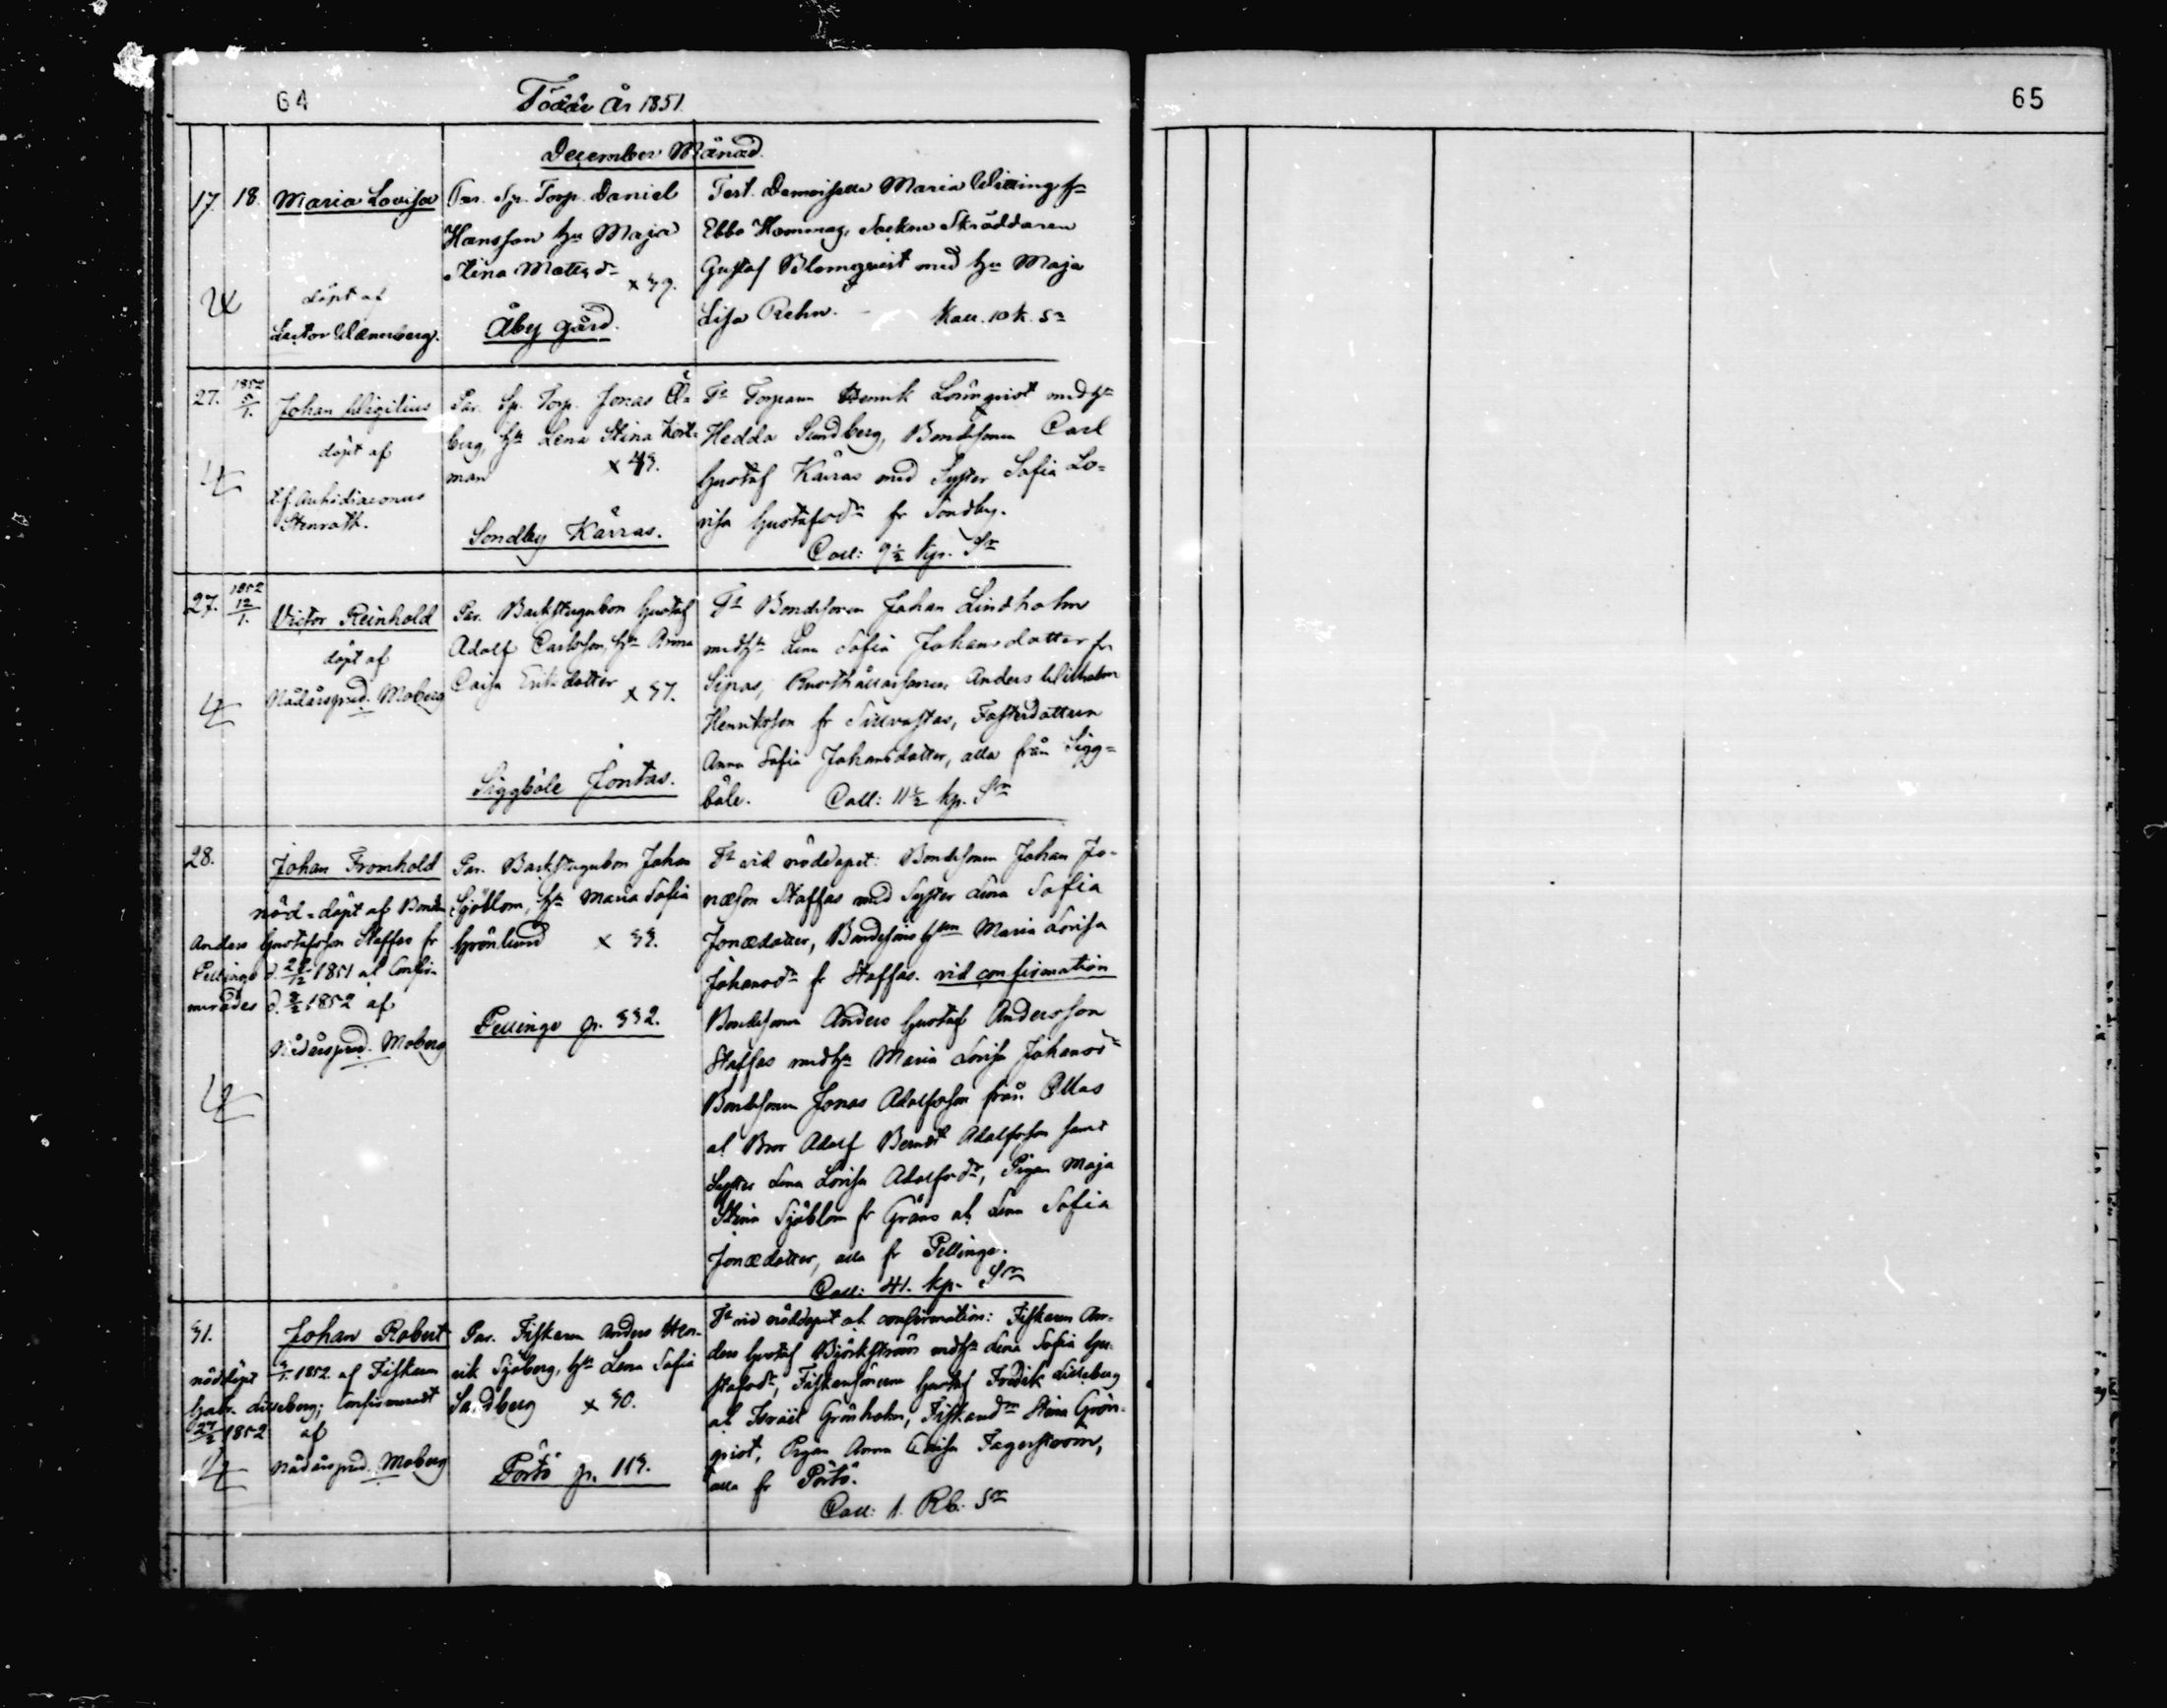 64
Födde År 1851.
65
December Månad.
17. 18. Maria Lovisa
döpt af
Lector Wannberg.
Par. Sp. Torp. Daniel
Hansson hu Maja
Stina Matsd.
x 39.
Åby gård.
Test. Demoiselle Maria Witting
Ebbo Hommag, Sockne Skräddaren
Gustaf Blomqvist med hu Maja
Lisa Rehn. Kall. 10 k. Sr
27. 1852 5/1. Johan Wigilius
döpt af
Archidiaconus
Stenroth.
Par. Sp. Torp. Jonas Ås-
berg, Hu Lena Stina
man x 43.
Sondby Kärras.
Ts Torparen Henrik Lönnqvist med Hu
Hedda Sundberg, Bondesonen Carl
Gustaf Kärras med Syster Sofia Lo-
visa Gustafsdr fr Sondby.
Coll: 9 1/2 kp. Sr
27. 1852 12/1. Victor Reinhold
döpt af
Nådårspred. Moberg
Par. Backstugubon Gustaf
Adolf Carlsson, Hu Anna
Caisa Eriksdotter x 37.
Siggböle Jontas.
Ts Bondesonen Johan Lindholm
med Hu Lena Sofia Johansdotter fr
Sipas, Rusthållaresonen Anders Wilhelm
Henriksson fr Sillvastas, Fosterdottren
Anna Sofia Johansdotter, alla från Sigg-
böle. Coll: 11 1/2 kp. Sr
28. Johan Fromhold
nöd-döpt af Bonden
Anders Gustafsson Staffas fr
Pellinge d. 29/12 1851 at Confir-
merades d. 2/2 1852 af
Nådårspred. Moberg
Par. Backstugubon Johan
Sjöblom, Hu Maria Sofia
Grönlund x 33.
Pellinge p. 332.
Ts vid nöddopet: Bondesonen Johan Jo-
næson Staffas med Syster Lena Sofia
Jonædotter, Bondesons Hun Maria Lovisa
Johansdr fr Staffas. vid confirmation
Bondesonen Anders Gustaf Andersson
Staffas med Hu Maria Lovisa Johansdr
Bondesonen Jonas Adolfsson från Ollas
at Bror Adolf Berndt Adolfsson samt
Syster Lena Lovisa Adolfsdr, Pigan Maja
Stina Sjöblom fr Gräns at Lena Sofia
Jonædotter, alla fr Pellinge.
Coll: 41. kp. Sr
31. Johan Robert
nöddöpt 3/1. 1852. af Fiskaren
Gabr. Lilleberg; Confirmeradt
27/2 1852 af
Nådårspred. Moberg
Par. Fiskaren Anders Hen-
rik Sjöberg, Hu Lena Sofia
Sandberg x 30.
Pörtö p. 113.
Ts vid nöddopet at confirmation: Fiskaren An-
ders Gustaf Björkström med Hu Lena Sofia Gu-
stafsdr, Fiskaresönerne Gustaf Fredrik Lilleberg
at Israël Grönholm, Fiskaredr Stina Grön-
qvist, Pigan Anna Lovisa Fagerström,
alla fr Pörtö.
Coll: 1. Rb. Sr